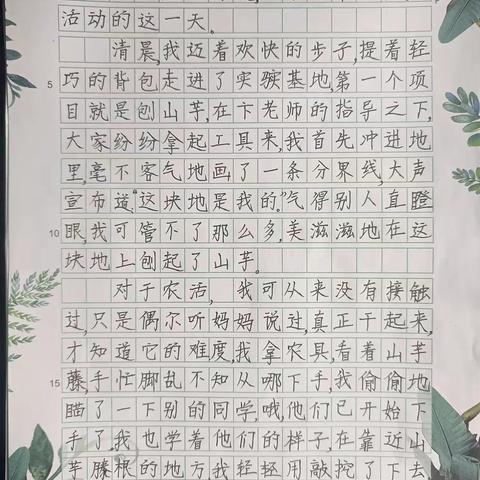 活动的这一天。
清晨,我迈着欢快的步子,提着轻
5 巧的背包走进了实验基地,第一个项
目就是刨山芋,在卞老师的指导之下,
大家纷纷拿起工具来,我首先冲进地
里,毫不客气地画了一条分界线,大声
宣布道:“这块地是我的。”气得别人直瞪
10 眼,我可管不了那么多,美滋滋地在这
块地上刨起了山芋。
对于农活,我可从来没有接触
过,只是偶尔听妈妈说过,真正干起来,
才知道它的难度,我拿农具,看着山芋
15 藤,手忙脚乱不知从哪下手,我偷偷地
瞄了一下别的同学,哦,他们已开始下
手了,我也学着他们的样子,在靠近山
芋藤根的地方我轻轻用敲挖了下去,